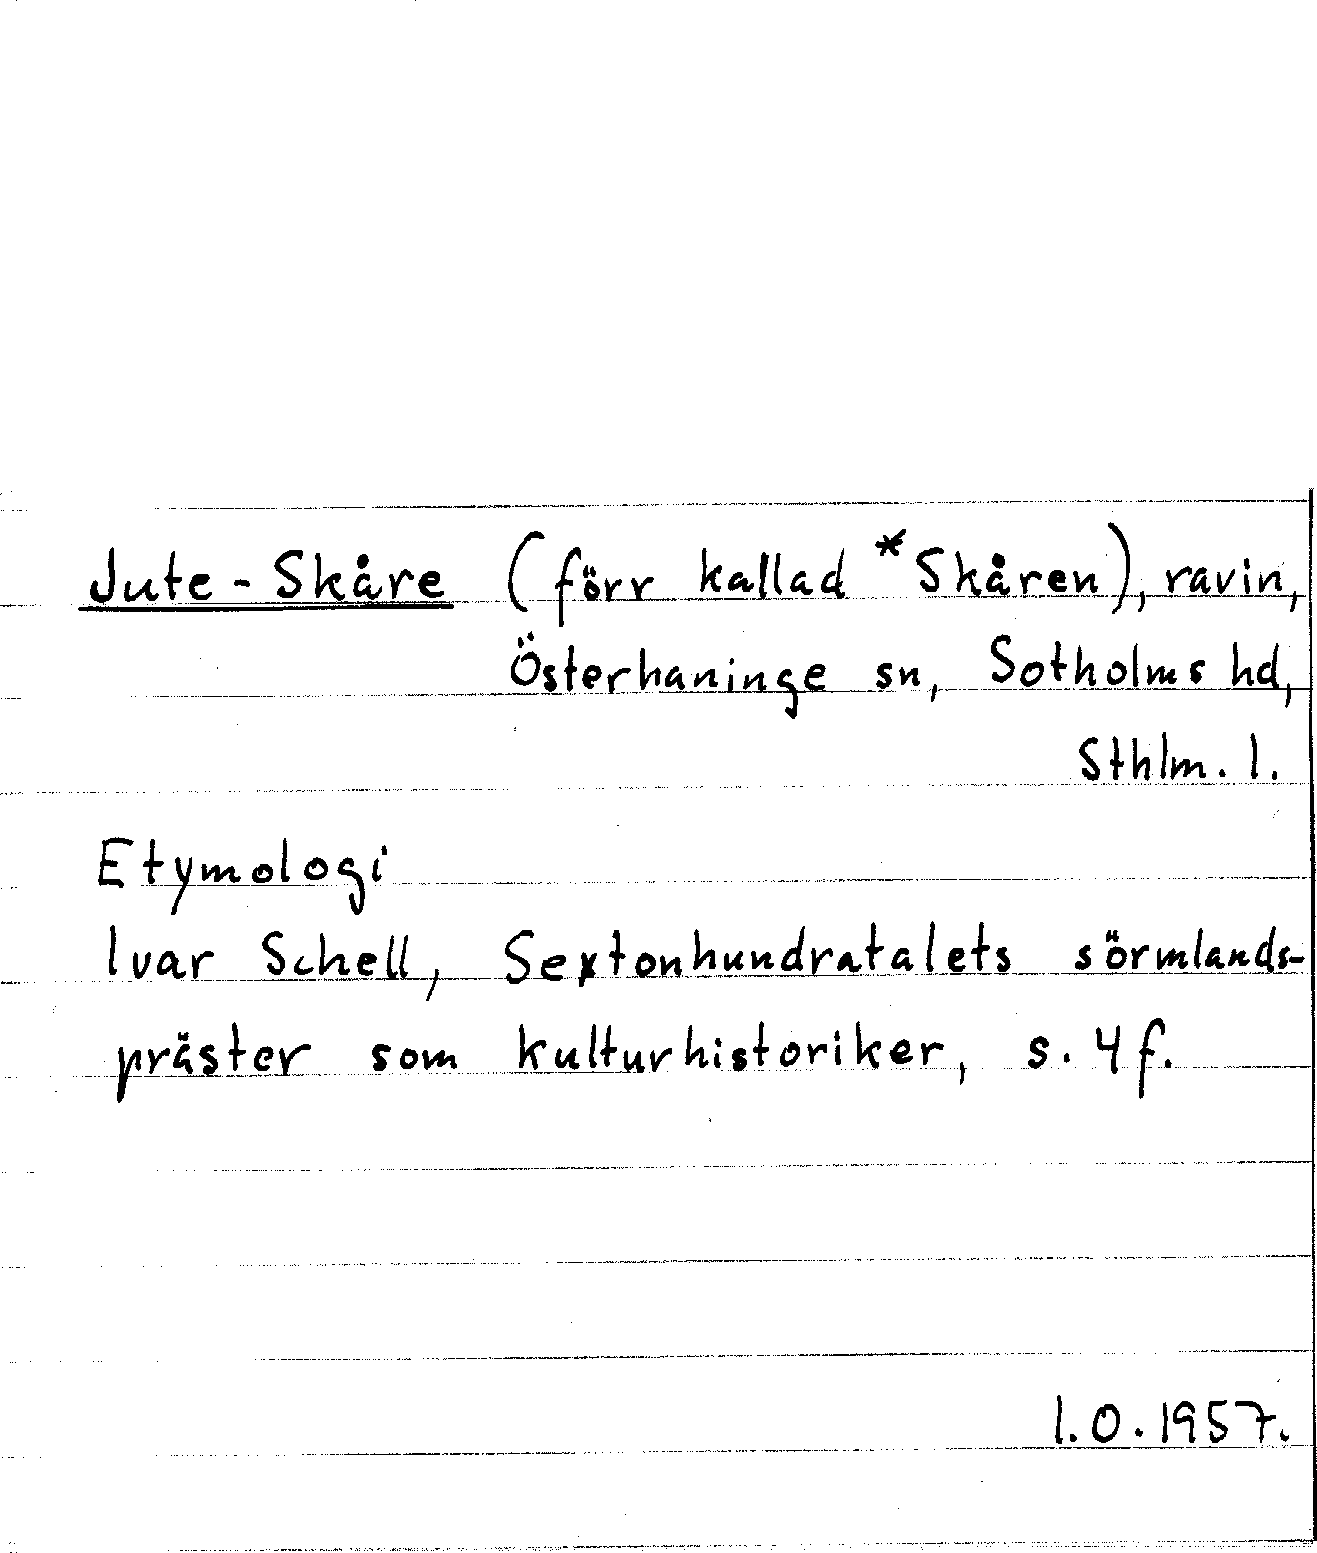 Jute-Skåre (förr kallad *Skåren), ravin,
Österhaninge sn, Sotholms hd,
Sthlm. l.
Etymologi
Ivar Schell, Sextonhundratalets sörmlands-
präster som kulturhistoriker, s. 4 f.
I.O. 1957.